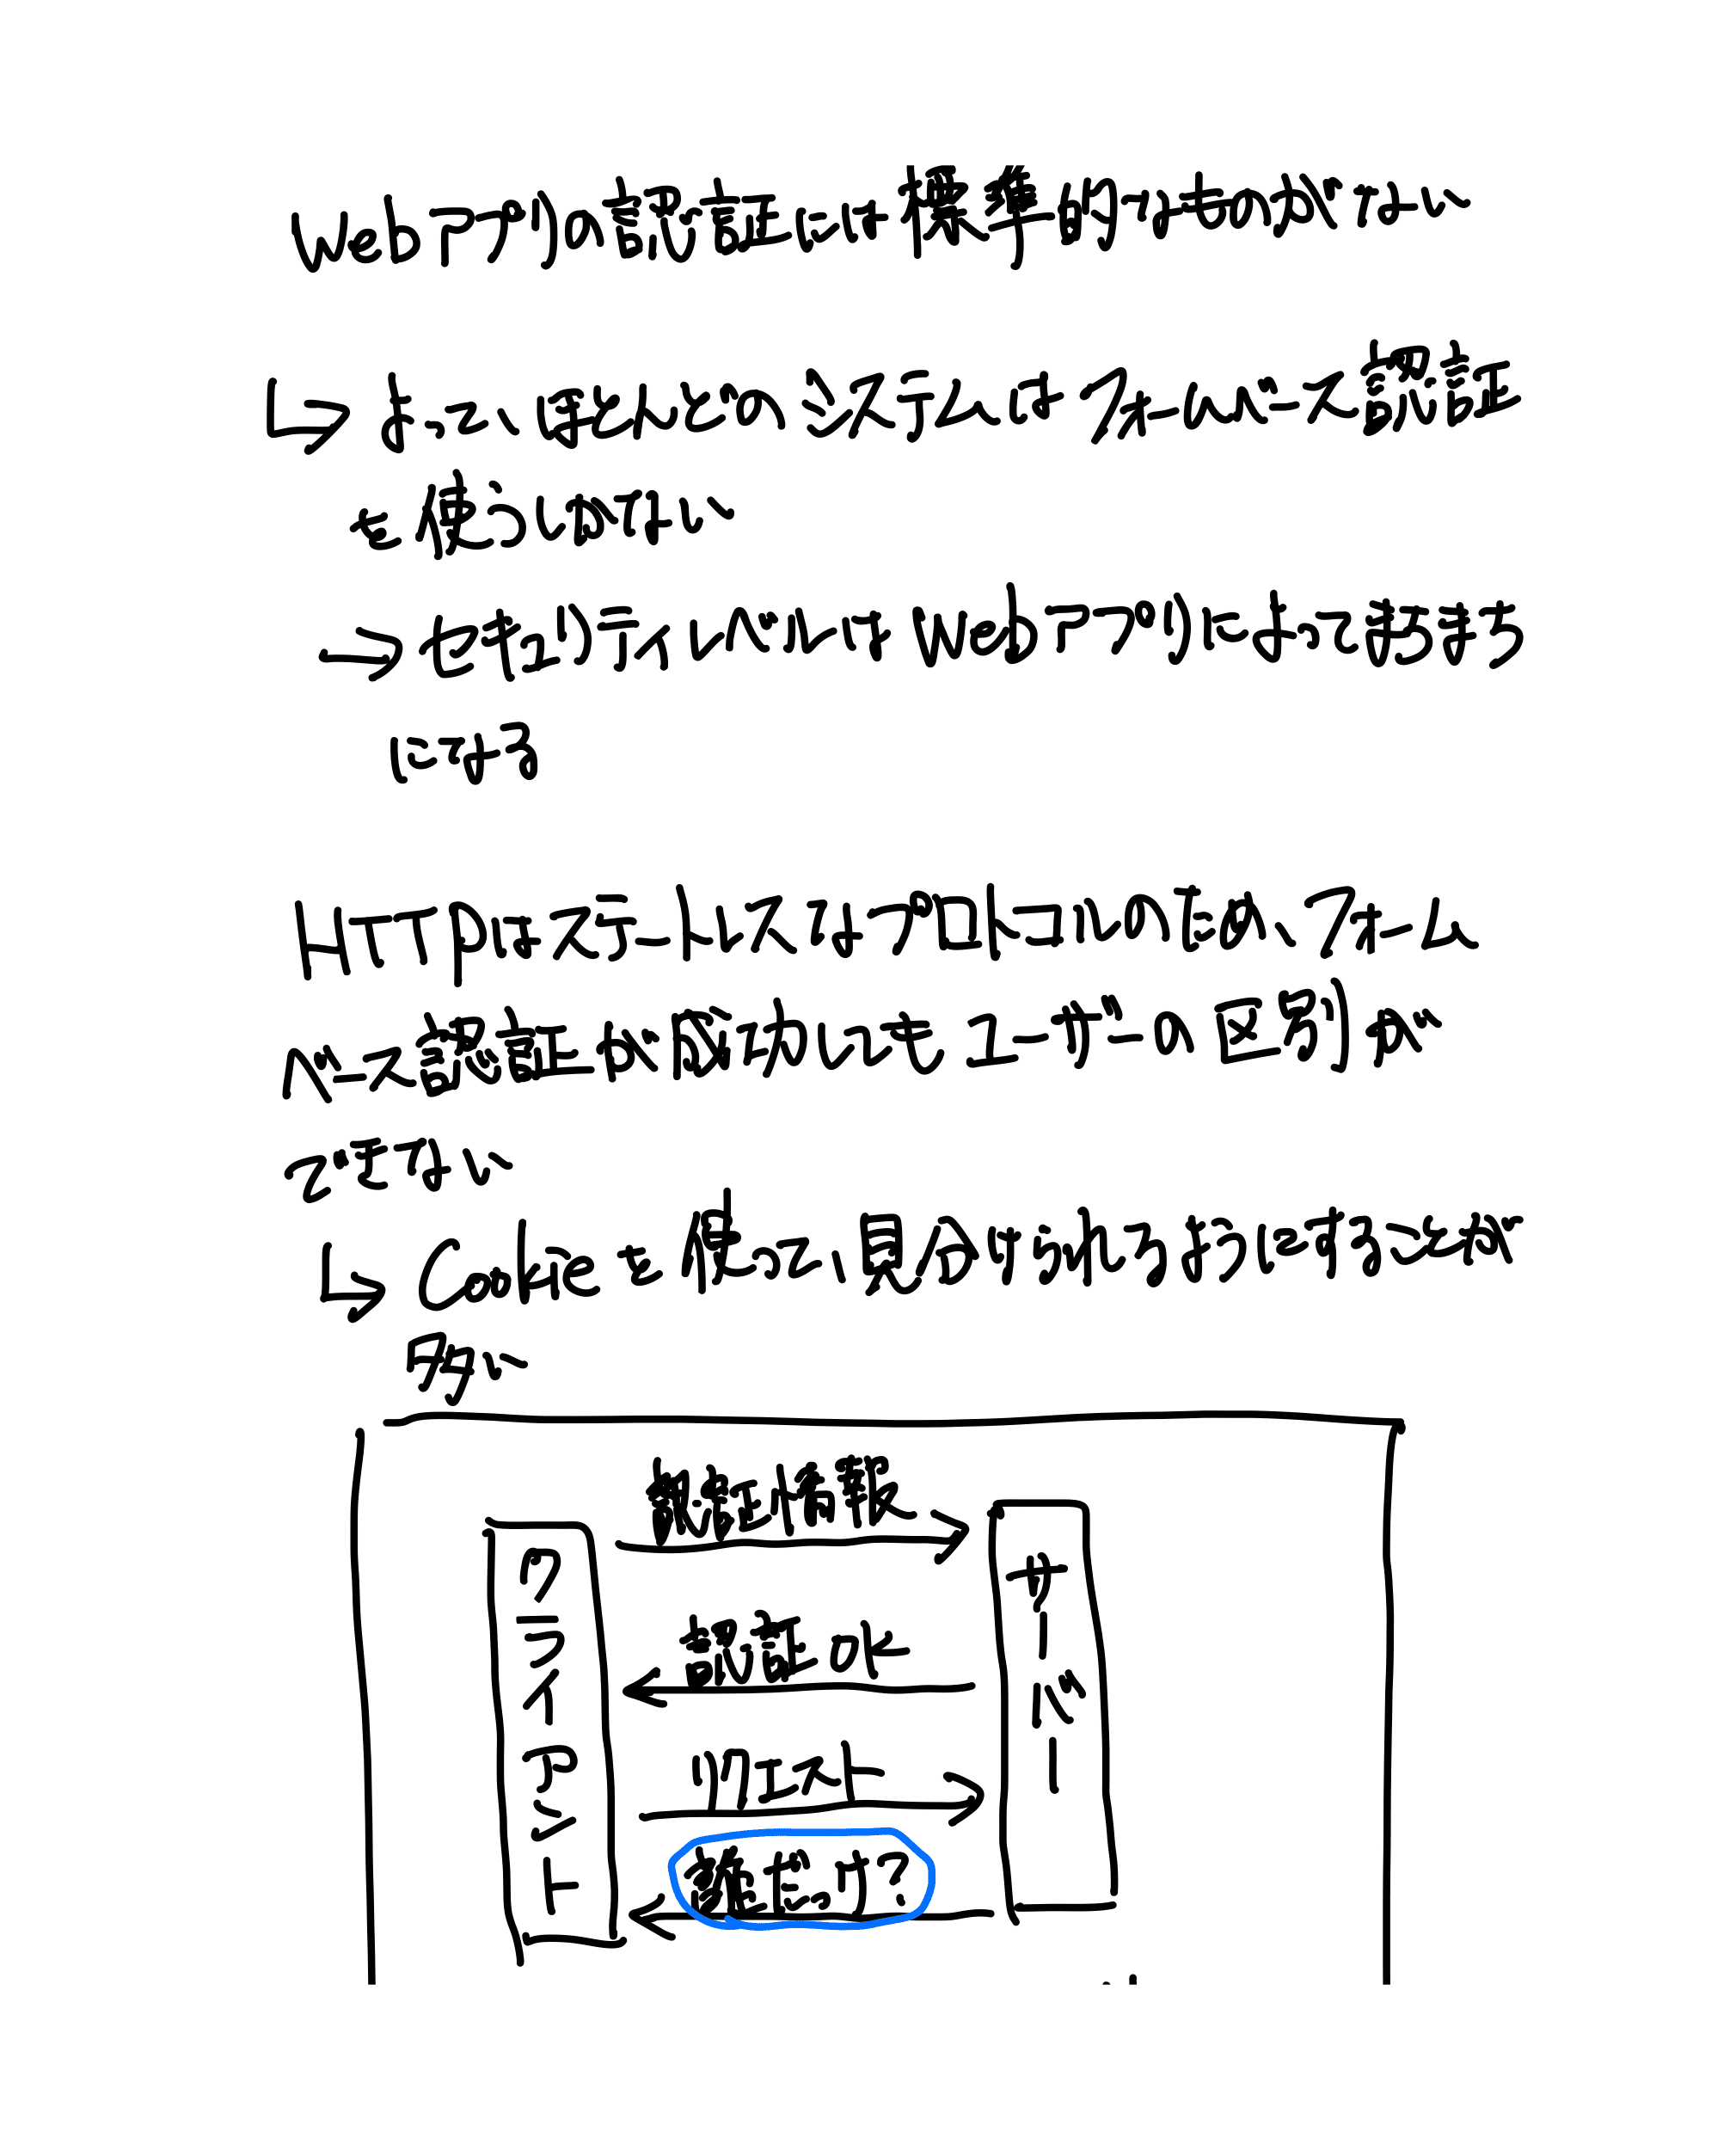 Webアプリの認証には標準的なものがない
よって、ほとんどのシステムはフォームベース認証
を使うしかない
セキュリティレベルはWebアプリによってまちまち
になる
HTTPはステートレスなプロトコルのため、フォーム
ベース認証が成功しても、ユーザーの区別が
できない
Cookieを使って、見分けられるようにすることが
多い
認証情報
クライアント
サーバー
認証OK
リクエスト
誰だっけ?